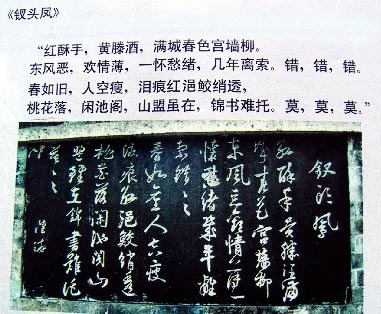 《钗头凤》
“红酥手，黄滕酒，满城春色宫墙柳。
东风恶，欢情薄，一怀愁绪，几年离索。错，错，错。
春如旧，人空瘦，泪痕红浥鲛绡透，
桃花落，闲池阁，山盟虽在，锦书难托。莫，莫，莫。”
钗头凤
红酥手黄滕酒满
城春色宫墙柳
东风恶欢情薄一
怀愁绪几年离
索错〻〻
春如旧人空瘦
泪痕红浥鲛绡透
桃花落闲池阁山
盟虽在锦书难托
莫〻〻